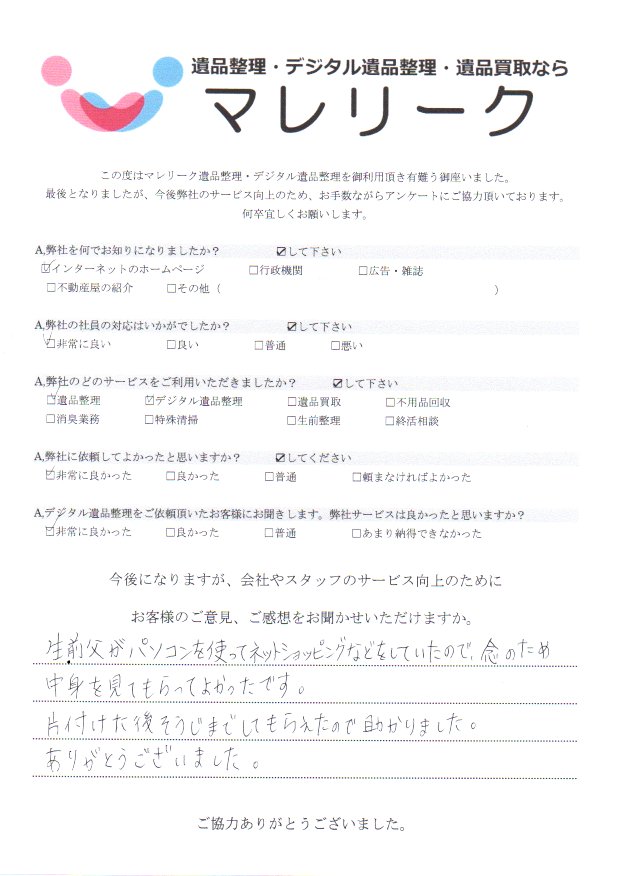 遺品整理・デジタル遺品整理・遺品買取なら
マレリーク
この度はマレリーク遺品整理・デジタル遺品整理を御利用頂き有難う御座いました。
最後となりましたが、今後弊社のサービス向上のため、お手数ながらアンケートにご協力頂いております。
何卒宜しくお願いします。
A,弊社を何でお知りになりましたか？ ☑して下さい
☑インターネットのホームページ □行政機関 □広告・雑誌
□不動産屋の紹介 □その他（ ）
A,弊社の社員の対応はいかがでしたか？ ☑して下さい
☑非常に良い □良い □普通 □悪い
A,弊社のどのサービスをご利用いただきましたか？ ☑して下さい
☑遺品整理 ☑デジタル遺品整理 □遺品買取 □不用品回収
□消臭業務 □特殊清掃 □生前整理 □終活相談
A,弊社に依頼してよかったと思いますか？ ☑してください
☑非常に良かった □良かった □普通 □頼まなければよかった
A,デジタル遺品整理をご依頼頂いたお客様にお聞きします。弊社サービスは良かったと思いますか？
☑非常に良かった □良かった □普通 □あまり納得できなかった
今後になりますが、会社やスタッフのサービス向上のために
お客様のご意見、ご感想をお聞かせいただけますか。
生前父がパソコンを使ってネットショッピングなどをしていたので、念のため
中身を見てもらってよかったです。
片付けた後そうじまでしてもらえたので助かりました。
ありがとうございました。
ご協力ありがとうございました。